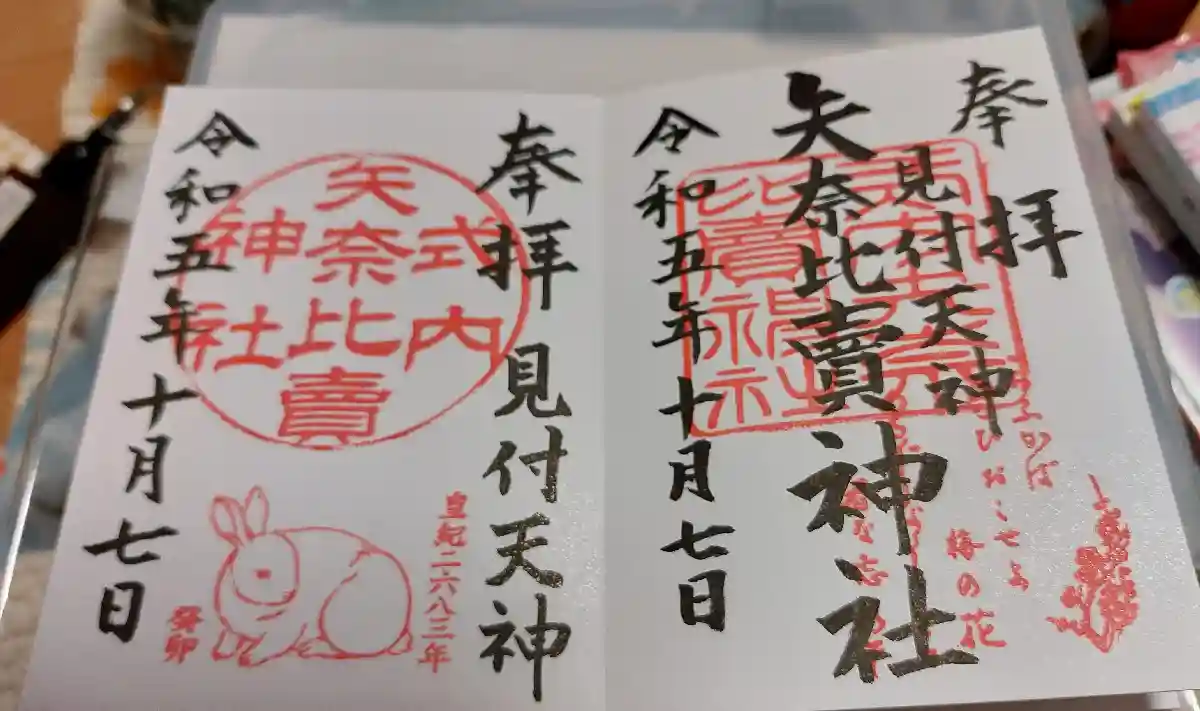 奉拝
見付天神
矢奈比賣神社
令和五年十月七日
こちふかば
にほひおこせよ
梅の花
奉拝 見付天神
式内
矢奈比賣
神社
皇紀二六八三年
癸卯
令和五年十月七日